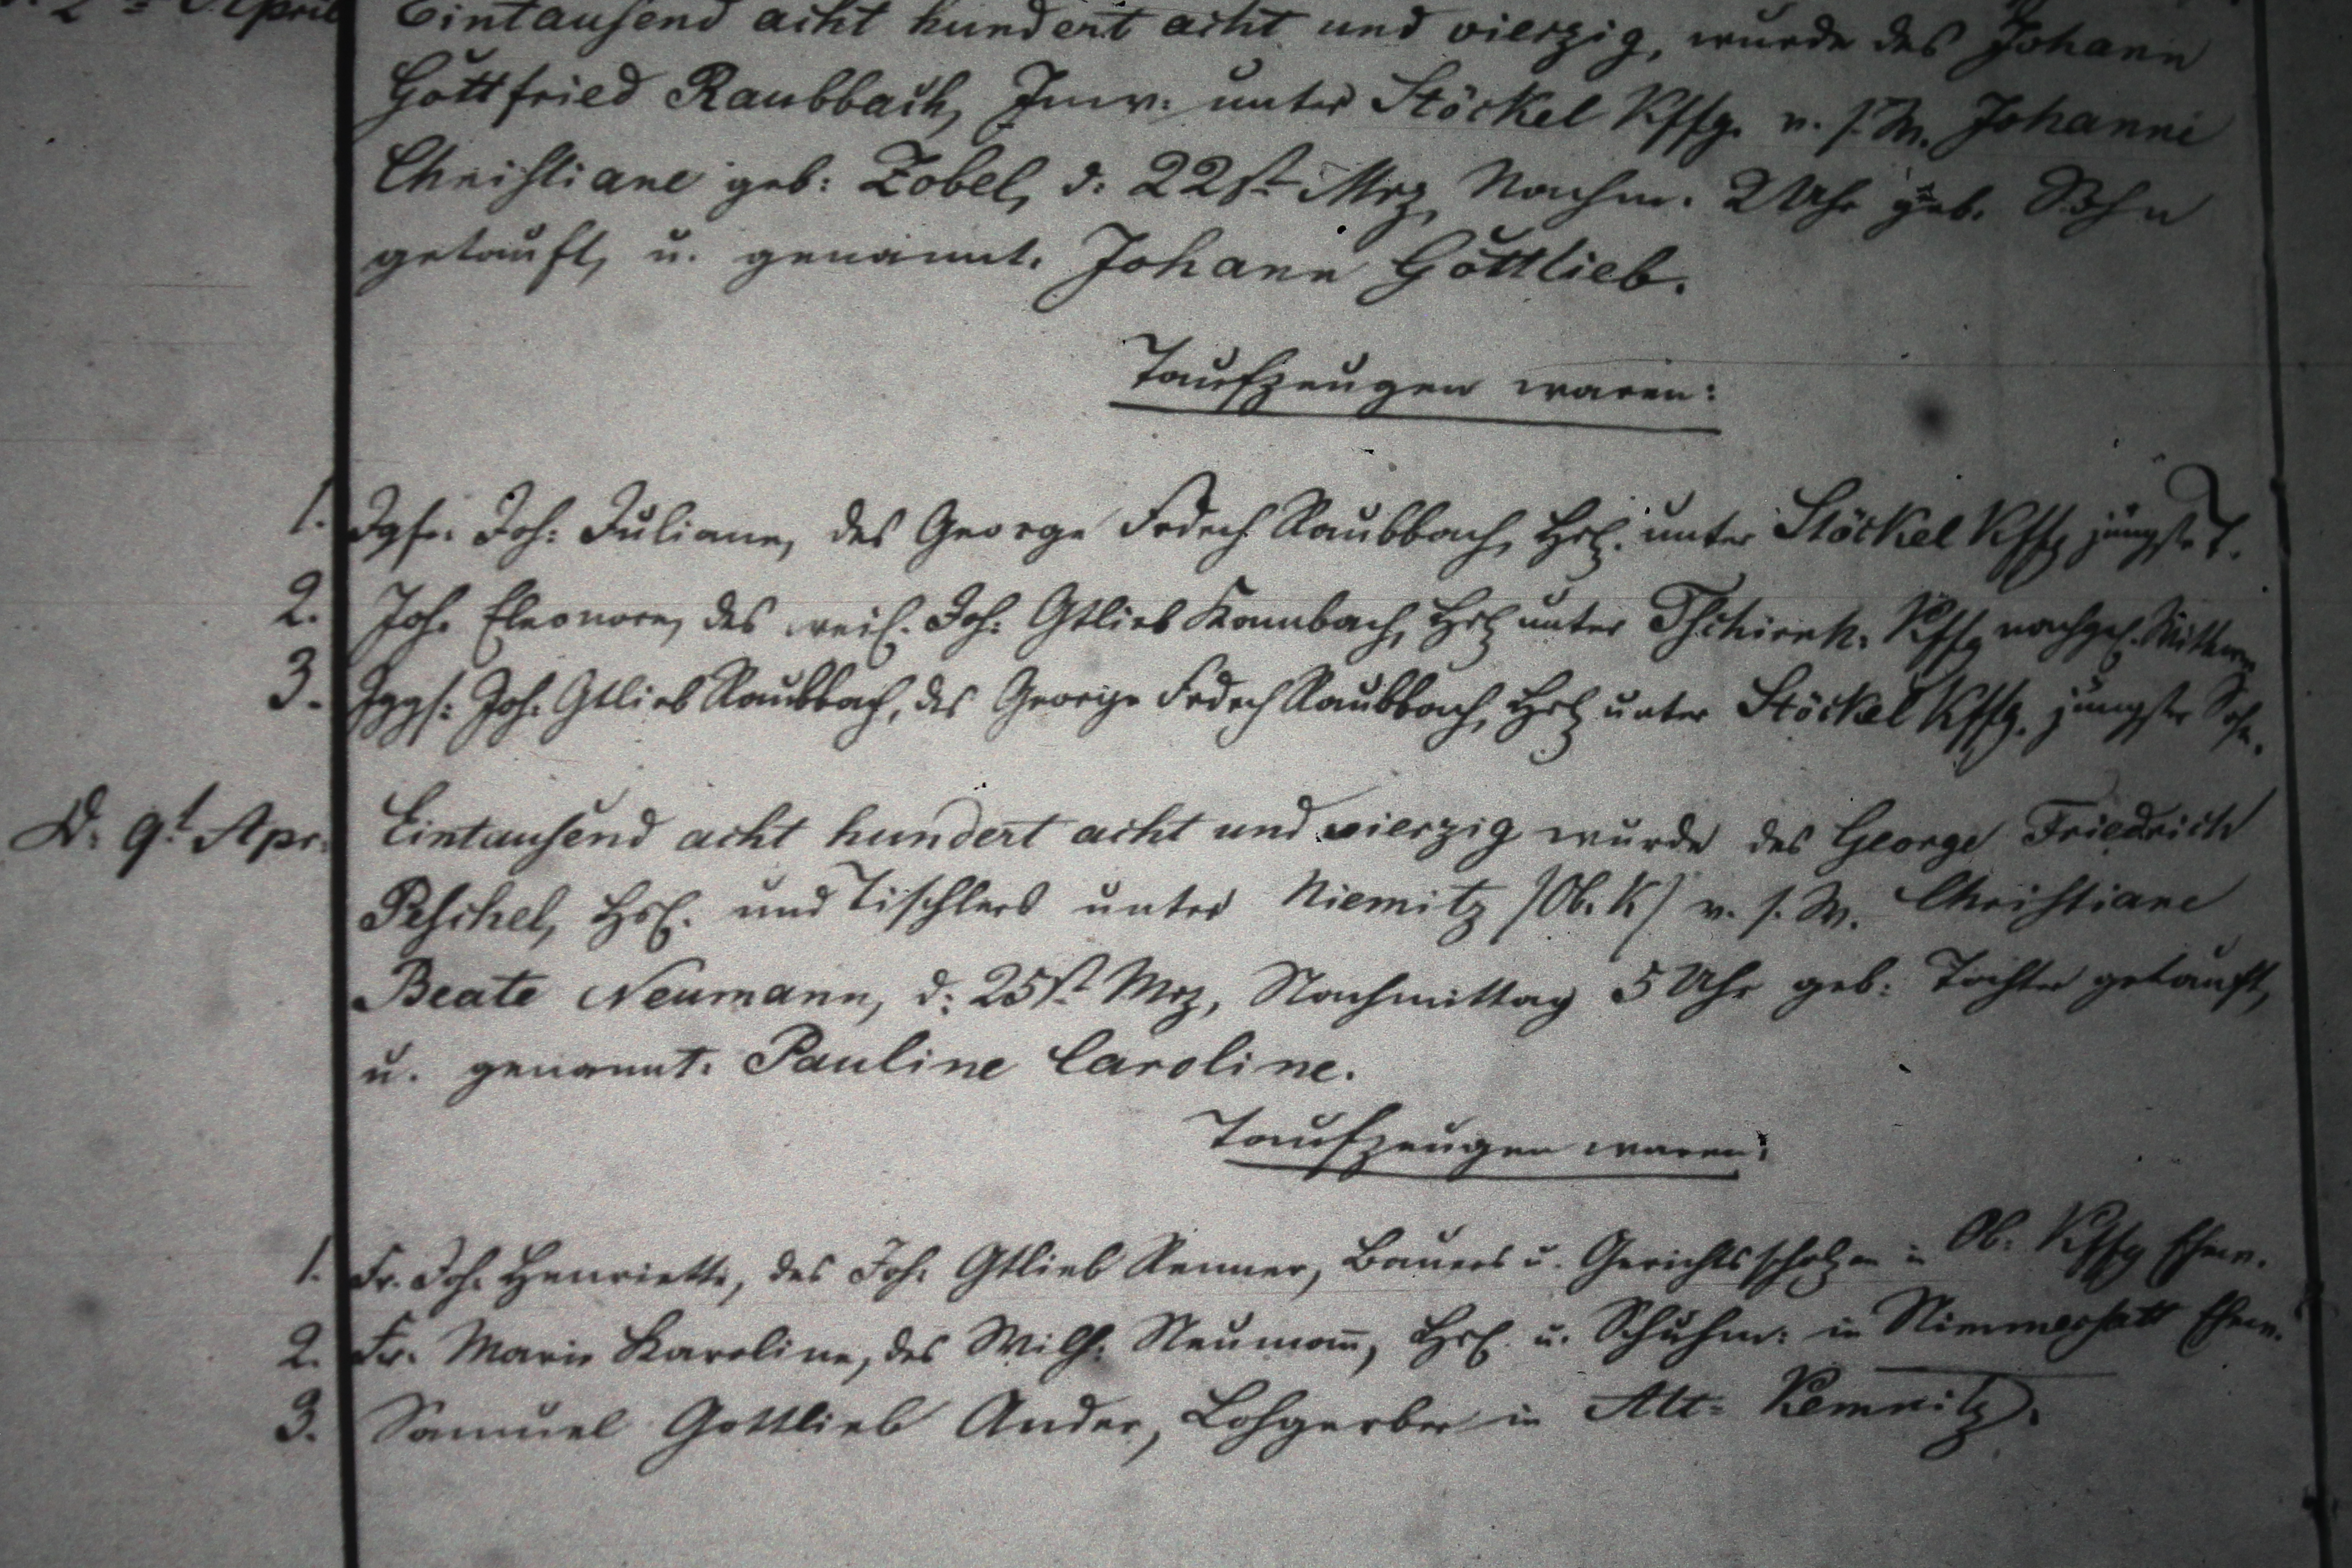 April Eintausend acht hundert acht und vierzig, wurde des Johann
Gottfried Raubbach, Inw: unter Stöckel Kffg. v. s. W. Johanne
Christiane geb: Zobel, d: 22st Mrz, Nachm. 2 Uhr geb. Sohn
getauft, u. genannt. Johann Gottlieb.
Taufzeugen waren:
1. Jgfr. Joh: Juliane, des George Frdrch Raubbach, Hsl. unter Stöckel Kffg jüngste T.
2. Joh. Eleonore, des weil. Joh: Gtlieb Raubbach, Hsl unter Tschirnh. Kffg nachgel. Wittwe
3. Jggs: Joh: Gtlieb Raubbach, des George Frdrch Raubbach, Hsl unter Stöckel Kffg. jüngster Sohn.
D. 9t Apr. Eintausend acht hundert acht und vierzig wurde des George Friedrich
Peschel, Hsl. und Tischlers unter Niemitz /Ob. K/ v. s. W. Christiane
Beate Neumann, d: 25st Mrz, Nachmittag 5 Uhr geb: Tochter getauft,
u. genannt. Pauline Caroline.
Taufzeugen waren:
1. Fr. Joh. Henriette, des Joh: Gtlieb Renner, Bauers u. Gerichtsscholzen in Ob: Kffg Ehew.
2. Fr. Marie Karoline, des Wilh: Neumann, Hsl. u. Schuhm: in Nimmersatt Ehew.
3. Samuel Gottlieb Ander, Lohgerber in Alt-Kemnitz.